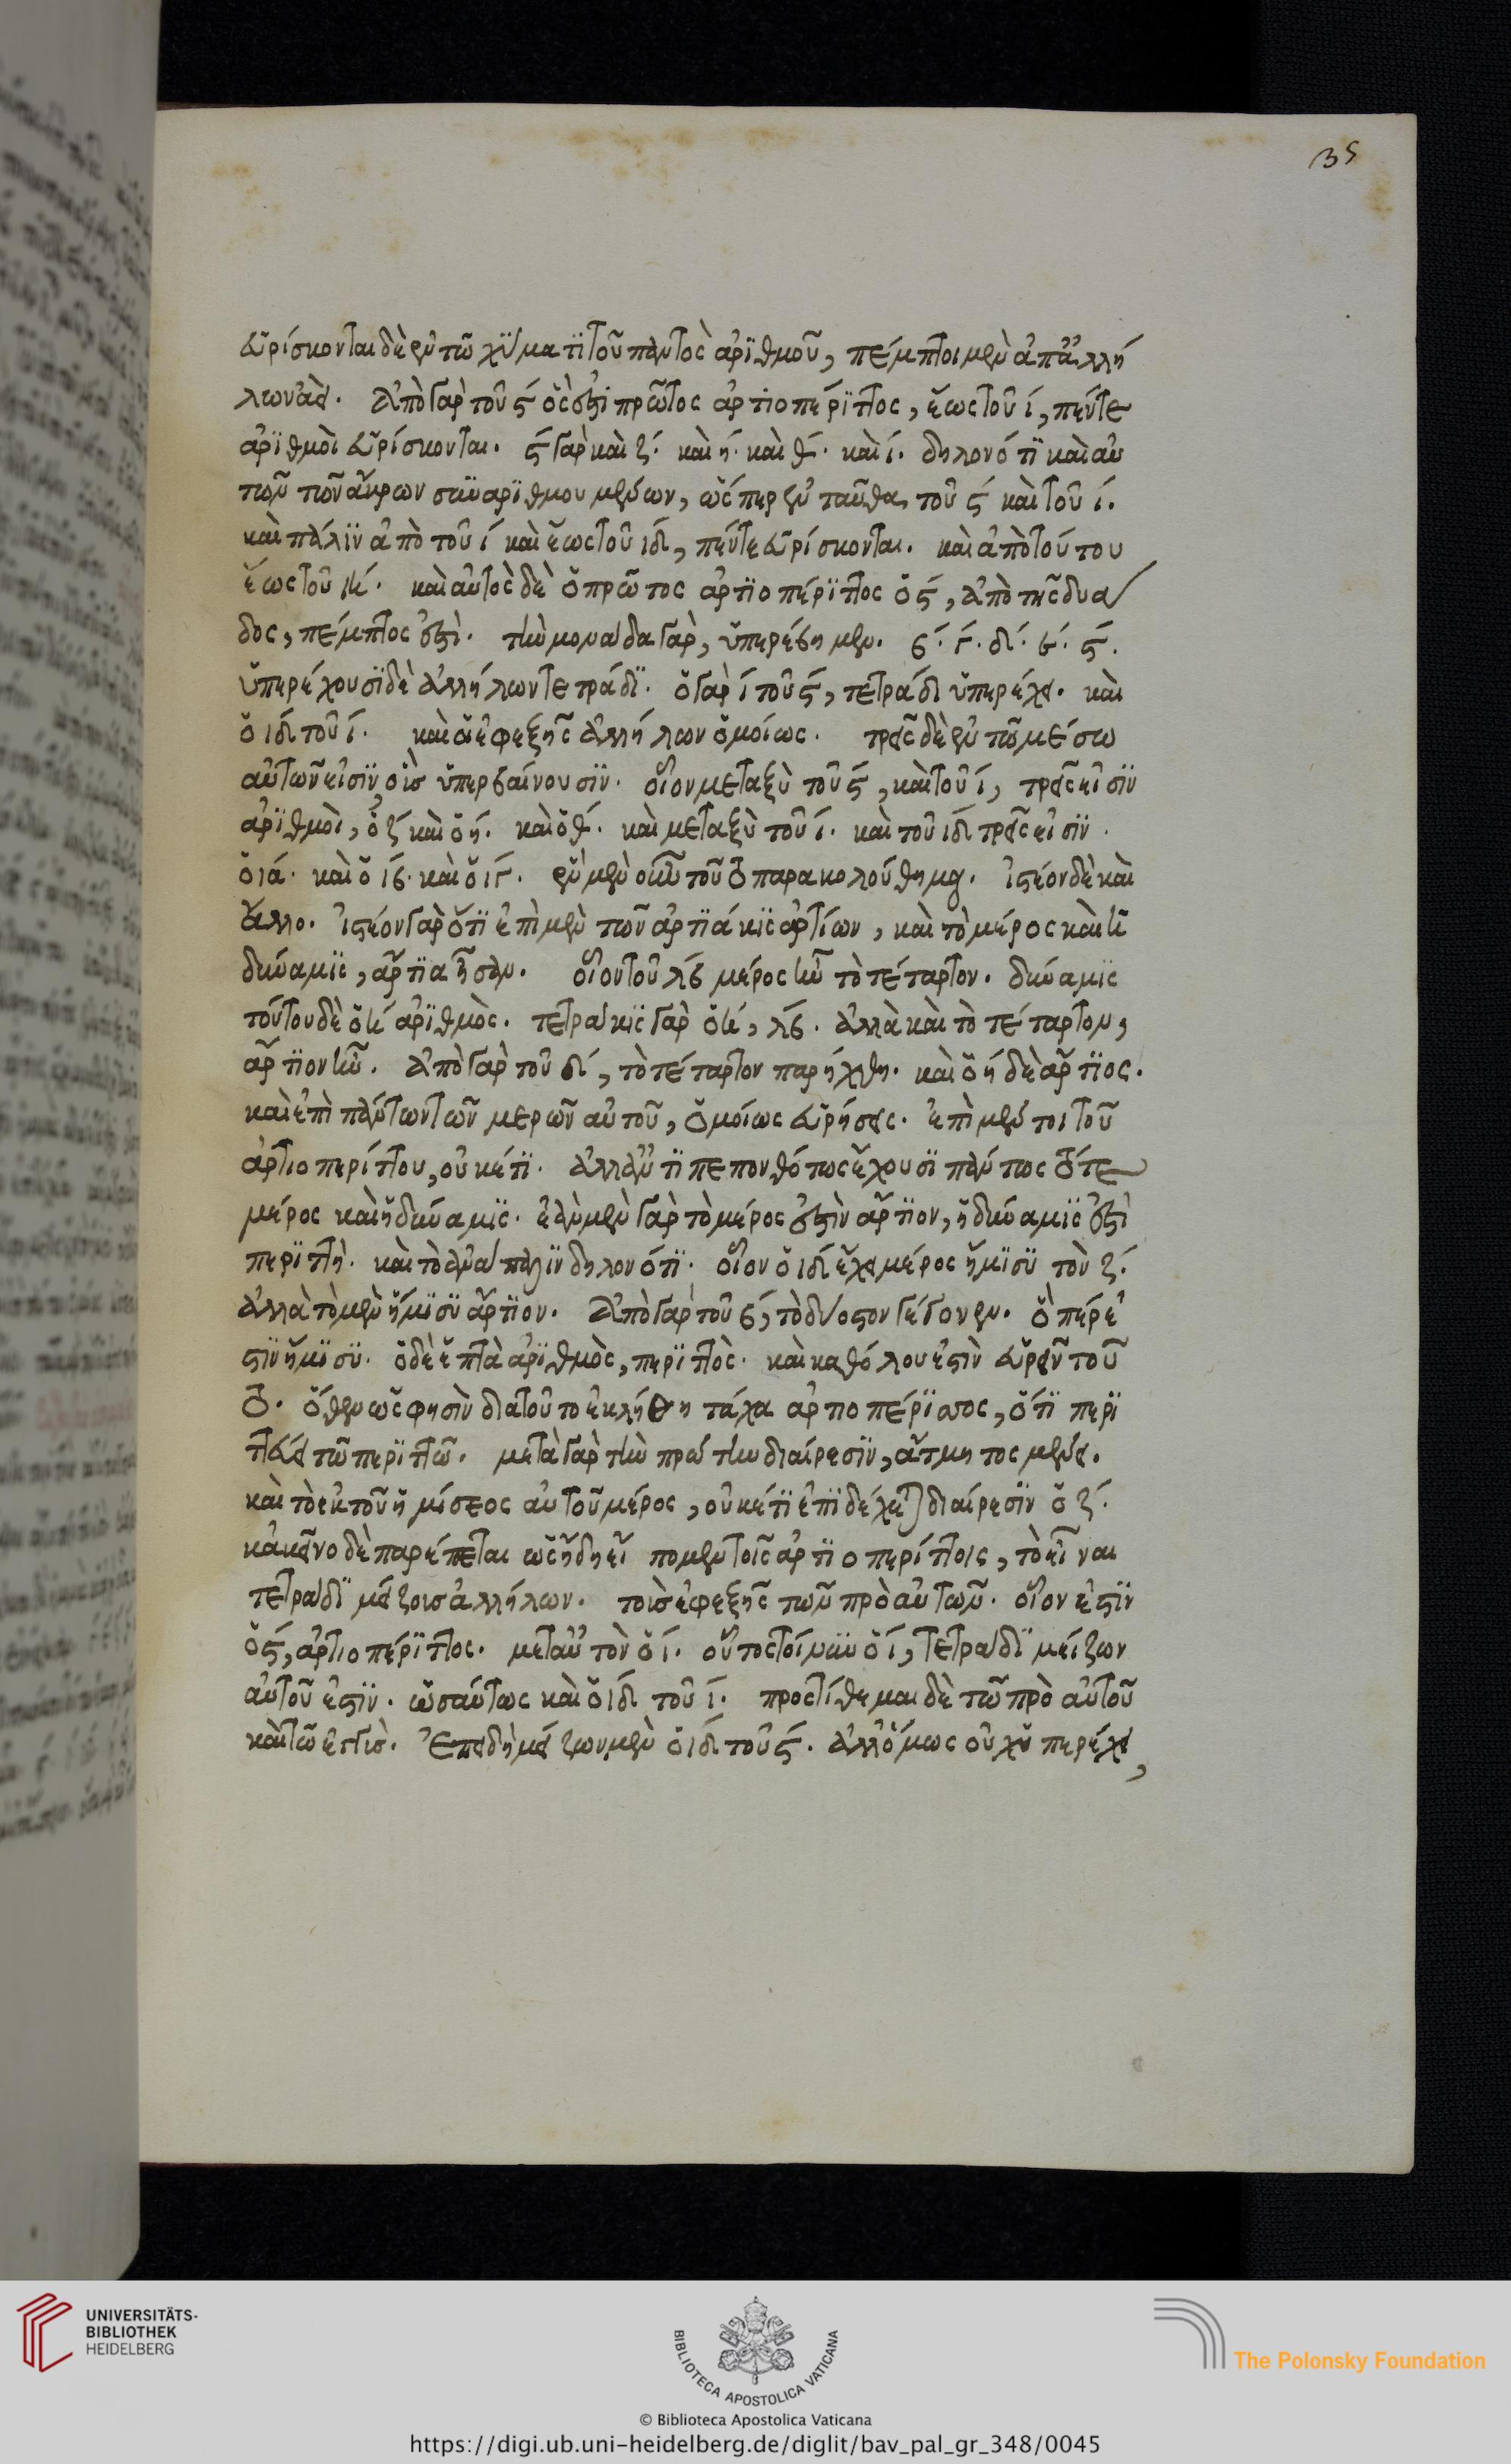 35
εὑρίσκονται δὲ ἐν τῶ χύματι τοῦ παντὸς ἀριθμοῦ, πέμπτοι μὲν ἀπ' ἀλλή
λων ἀεί. ἀπὸ γὰρ τοῦ ς ὅς ἐστι πρῶτος ἀρτιοπέριττος, ἕως τοῦ ί, πέντε
ἀριθμοὶ εὑρίσκονται. ς γὰρ καὶ ζ. καὶ ή. καὶ θ. καὶ ί. δηλονότι καὶ αὐ
τῶν τῶν ἄκρων συναριθμουμένων, ὥσπερ ἐνταῦθα, τοῦ ς καὶ τοῦ ί.
καὶ πάλιν ἀπὸ τοῦ ί καὶ ἕως τοῦ ιδ, πέντε εὑρίσκονται. καὶ ἀπὸ τούτου
ἕως τοῦ ιή. καὶ αὐτὸς δὲ ὁ πρῶτος ἀρτιοπέριττος ὁ ς, ἀπὸ τῆς δυά
δος, πέμπτος ἐστὶ. τὴν μονάδα γὰρ, ὑπερέβημεν. β. γ. δ. ε. ς.
ὑπερέχουσι δὲ ἀλλήλων τετράδι. ὁ γὰρ ί τοῦ ς, τετράδι ὑπερέχει. καὶ
ὁ ιδ τοῦ ί. καὶ οἱ ἐφεξῆς ἀλλήλων ὁμοίως. τρεῖς δὲ ἐν τῶ μέσω
αὐτῶν εἰσὶν, οὓς ὑπερβαίνουσιν. οἷον μεταξὺ τοῦ ς, καὶ τοῦ ί, τρεῖς εἰσὶν
ἀριθμοὶ, ὁ ζ καὶ ὁ ή. καὶ ὁ θ. καὶ μεταξὺ τοῦ ί. καὶ τοῦ ιδ τρεῖς εἰσὶν.
ὁ ια. καὶ ὁ ιβ. καὶ ὁ ιγ. ἓν μὲν οὖν τοῦτο παρακολούθημα. ἰστέον δὲ καὶ
ἄλλο. ἰστέον γὰρ ὅτι ἐπὶ μὲν τῶν ἀρτιάκις ἀρτίων, καὶ τὸ μέρος καὶ ἡ
δύναμις, ἄρτια ἦσαν. οἷον τοῦ λβ μέρος ἦν τὸ τέταρτον. δύναμις
τούτου δὲ ὁ ή ἀριθμὸς. τετράκις γὰρ ὁ ή, λβ. ἀλλὰ καὶ τὸ τέταρτον,
ἄρτιον ἦν. ἀπὸ γὰρ τοῦ δ, τὸ τέταρτον παρήχθη. καὶ ὁ ή δὲ ἄρτιος.
καὶ ἐπὶ πάντων τῶν μερῶν αὐτοῦ, ὁμοίως εὑρήσεις. ἐπὶ μέντοι τοῦ
ἀρτιοπερίττου, οὐκέτι. ἀλλ' ἀντιπεπονθότως ἔχουσι πάντως τό τε
μέρος καὶ ἡ δύναμις. ἐὰν μὲν γὰρ τὸ μέρος ἐστὶν ἄρτιον, ἡ δύναμις ἐστὶ
περιττὴ. καὶ τὸ ἀνάπαλιν δηλονότι. οἷον ὁ ιδ ἔχει μέρος ἥμισυ τὸν ζ.
ἀλλὰ τὸ μὲν ἥμισυ ἄρτιον. ἀπὸ γὰρ τοῦ β, τὸ δυοστὸν γέγονεν. ὅπερ ἐ
στὶν ἥμισυ. ὁ δὲ ἑπτὰ ἀριθμὸς, περιττὸς. καὶ καθόλου ἐστὶν εὑρεῖν τοῦ
το. ὅθεν ὥς φησὶν διατοῦτο ἐκλήθη τάχα ἀρτιοπέριττος, ὅτι περι
τεύει τῶ περιττῶ. μετὰ γὰρ τὴν πρώτην διαίρεσιν, ἄτμητος μένει.
καὶ τὸ ἐκ τοῦ ἡμίσεος αὐτοῦ μέρος, οὐκέτι ἐπιδέχεται διαίρεσιν ὁ ζ.
κἀκεῖνο δὲ παρέπεται ὡς ἤδη εἴπομεν τοῖς ἀρτιοπερίττοις, τὸ εἶναι
τετράδι μείζους ἀλλήλων. τοὺς ἐφεξῆς τῶν πρὸ αὐτῶν. οἷον ἐστὶν
ὁ ς, ἀρτιοπέριττος. μετ' αὐτὸν ὁ ί. οὗτος τοίνυν ὁ ί, τετράδι μείζων
αὐτοῦ ἐστὶν. ὡσαύτως καὶ ὁ ιδ τοῦ ί. προστίθεμαι δὲ τῶ πρὸ αὐτοῦ
καὶ τῶ ἐγγὺς. ἐπειδὴ μείζων μὲν ὁ ιδ τοῦ ς. ἀλλ' ὅμως οὐχ ὑπερέχει,
UNIVERSITÄTS-
BIBLIOTHEK
HEIDELBERG
BIBLIOTECA APOSTOLICA VATICANA
The Polonsky Foundation
© Biblioteca Apostolica Vaticana
https://digi.ub.uni-heidelberg.de/diglit/bav_pal_gr_348/0045